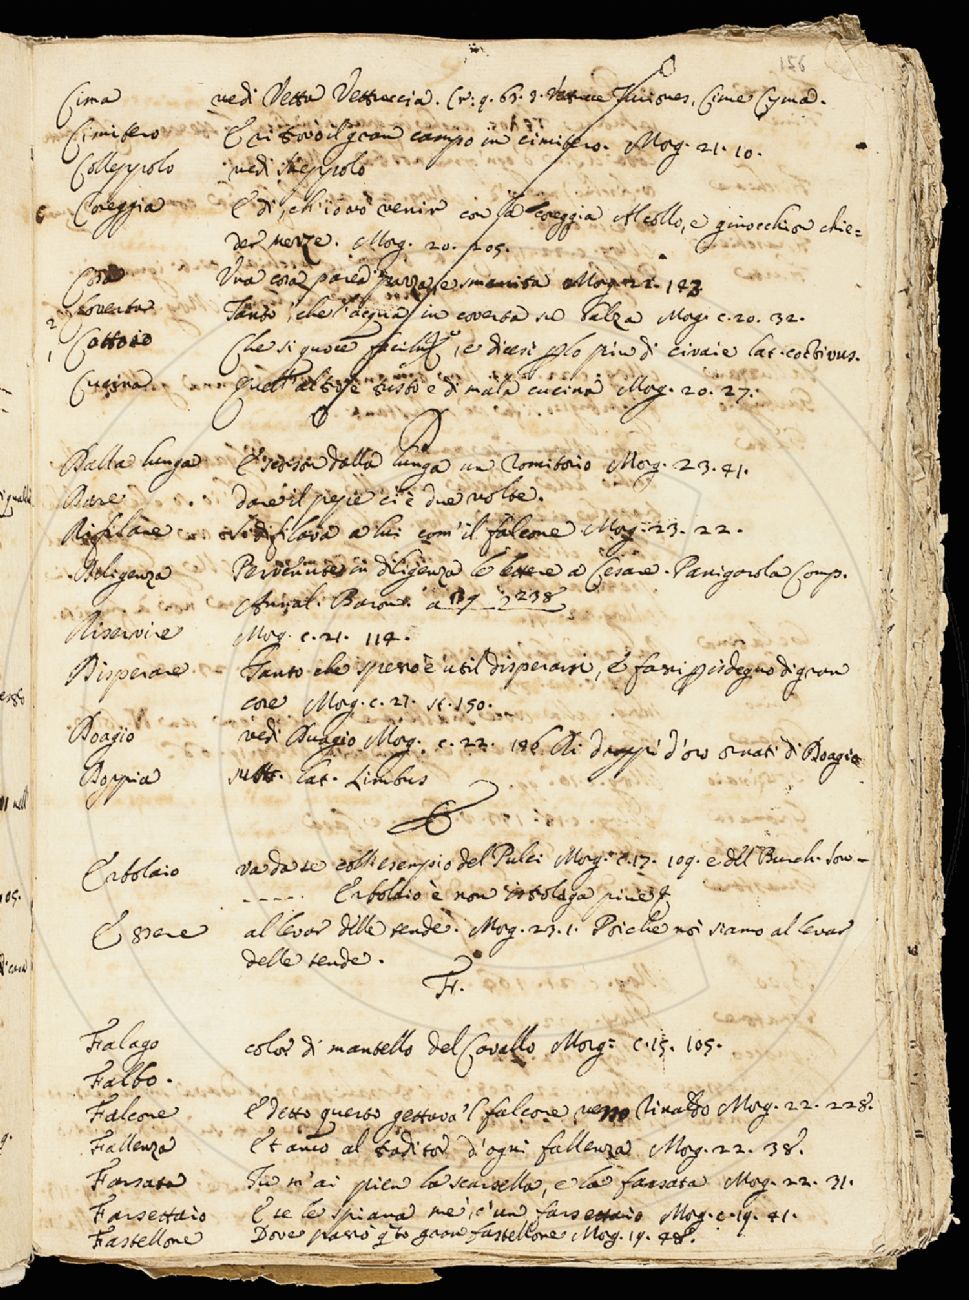 156
Cima vedi Vetta Vettuccia. Cr: 9. 63. 3. Iuniores. Cime Cyma.
Cimitero E ritrovò il gran campo in cimitero. Morg. 21. 10.
Colleppolo vedi Sceppolo
Coreggia E dì, ch'io vo' venir con la coreggia Al collo, e ginocchion chie=
der merze. Morg. 20. 105.
Cosa Una cosa parea pazza, e smarrita Morg. 22. 142
Coverta Tanto, che l'acqua in coverta su balza Morg. c. 20. 32.
Cottoio Che si quoce facilm.e, e dicesi p lo più di civaie lat. coctivus.
Cucina Quell'altro è tristo e di mala cucina Morg. 20. 27.
D
Dalla lunga E scorson dalla lunga un romitorio Morg. 23. 41.
Dare dare il pepe ci è due volte.
Difilare Si difilava a lui com' il falcone Morg. 23. 22.
Diligenza Pervenute in diligenza le lettere a Cesare. Panigarola Comp.
Annal. Baron. a 238
Diservire Morg. c. 21. 114.
Disperare Tanto che spesso è util disperarsi, E farsi p isdegno di gran
core Morg. c. 21. st. 150.
Doagio vedi Duagio Morg. c. 22. 186 Di drappi d'oro ornati di Doagio
Doppia sust. lat. Limbus
E
Erbolaio va da se coll'esempio del Pulci Morg. c. 17. 109. e del Burch. Son=
- - - - - Erbolaio è non istoliga
Essere al levar delle tende. Morg. 23. 1. Poi che noi siamo al levar
delle tende.
F.
Falago color di mantello del Cavallo Morg: c. 15. 105.
Falbo.
Falcone E detto questo gettava'l falcone verso Rinaldo Morg. 22. 228.
Fallenza Et amo al traditor d'ogni fallenza Morg. 22. 38.
Farsata Tu m'ai pien la scarsella, e la farsata Morg. 22. 31.
Farsettaio E se le spiana me', c'un farsettaio Morg. c. 19. 41.
Fastellone Dove passò q.to gran fastellone Morg. 19. 48.